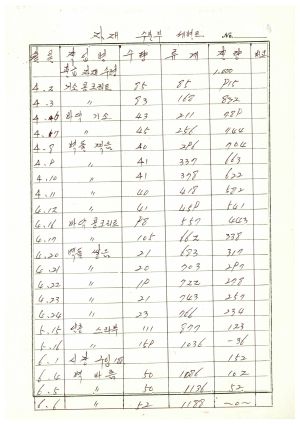 자재 수불부 세멘트 No.
월일 작업명 수량 류계 잔량 비고
자재 수령 1.000
4.2 기소 콘크리트 85 85 915
4.3 〃 83 168 832
바닥 기소 43 211 789
4.7 〃 45 256 744
4.8 벽돌 적음 40 296 704
4.9 〃 41 337 663
4.10 〃 41 378 622
4.11 〃 40 418 582
4.12 〃 41 459 541
4.16 바닥 콘크리트 98 557 443
4.17 〃 105 662 338
4.20 벽돌 쌓음 21 683 317
4.21 〃 20 703 297
4.22 〃 19 722 278
4.23 〃 21 743 257
4.24 〃 23 766 234
5.15 스라부 111 877 123
5.16 〃 159 1036 -36
6.1 수입 152
6.4 벽 바름 50 1086 102
6.5 〃 50 1136 52
6.6 〃 52 1188 -0-